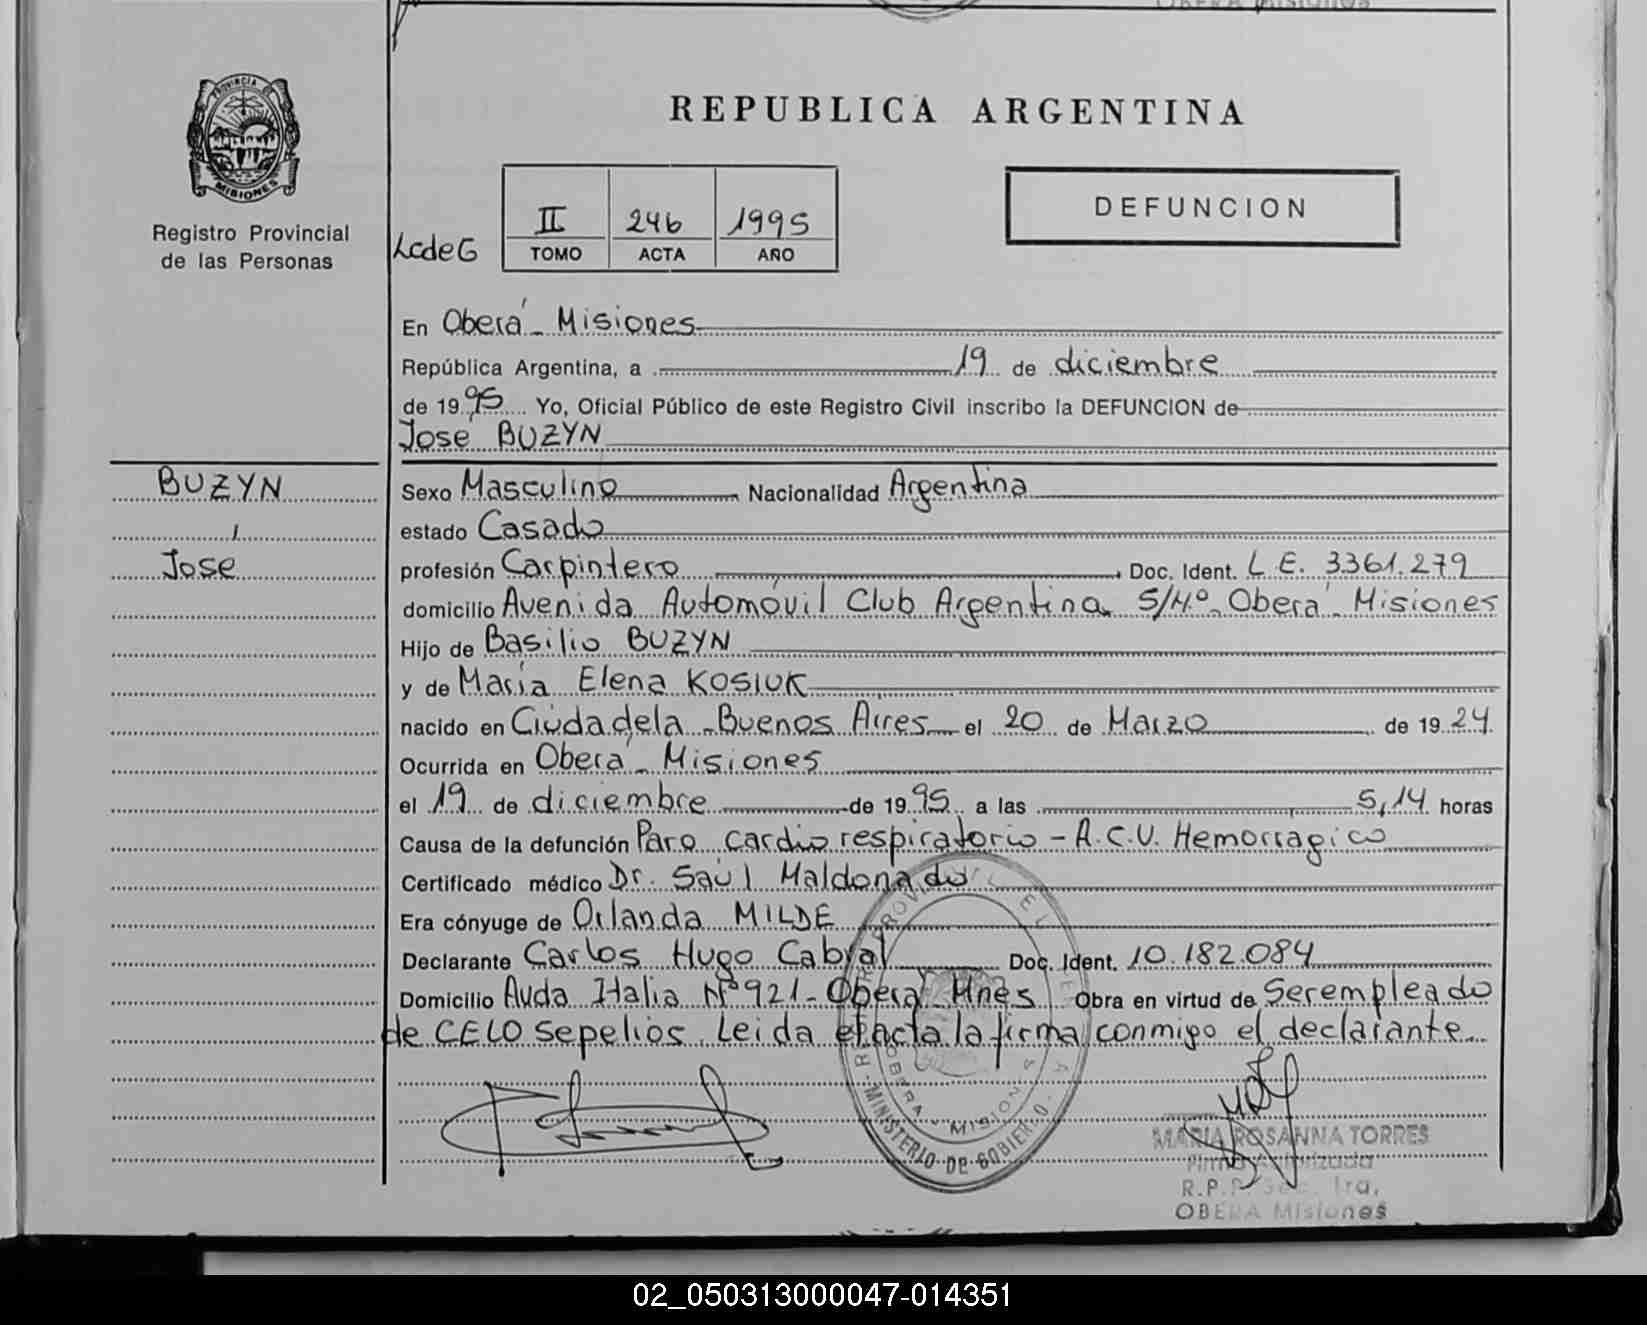 OBERA Misiones
PROVINCIA DE
MISIONES
Registro Provincial
de las Personas
REPUBLICA ARGENTINA
LcdeG
II 246 1995
TOMO ACTA AÑO
DEFUNCION
En Oberá - Misiones
República Argentina, a 19 de diciembre
de 1995 Yo, Oficial Público de este Registro Civil inscribo la DEFUNCION de
José BUZYN
BUZYN
,
Jose
Sexo Masculino Nacionalidad Argentina
estado Casado
profesión Carpintero Doc. Ident. L.E. 3361.279
domicilio Avenida Automóvil Club Argentina S/Nº Oberá - Misiones
Hijo de Basilio BUZYN
y de María Elena KOSIUK
nacido en Ciudadela - Buenos Aires el 20 de Marzo de 1924
Ocurrida en Oberá - Misiones
el 19 de diciembre de 1995 a las 5,14 horas
Causa de la defunción Paro cardio respiratorio - A.C.V. Hemorragico
Certificado médico Dr. Saúl Maldonado
Era cónyuge de Orlanda MILDE
Declarante Carlos Hugo Cabral Doc. Ident. 10.182.084
Domicilio Avda Italia Nº 921 - Oberá Mnes Obra en virtud de Serempleado
de CELO Sepelios. Leida el acta la firma conmigo el declarante
OBERA - MISIONES
MINISTERIO DE GOBIERNO
MARIA ROSANNA TORRES
Firma Autorizada
OBERA Misiones
02_050313000047-014351